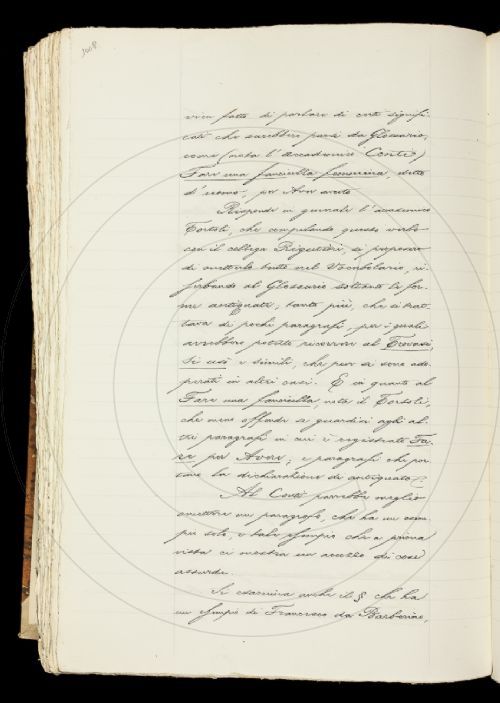 1008.
vien fatto di parlare di certi signifi-
cati che sarebbero parsi da Glossario,
come (nota l'accademico Conti)
Fare una fanciulla femmina, detto
d'uomo, per Aver avuto.
Risponde in generale l'accademico
Tortoli, che compilando questo verbo
con il collega Rigutini, si proposero
di metterlo tutto nel Vocabolario, ri-
serbando al Glossario soltanto le for-
me antiquate; tanto più, che si trat-
tava di pochi paragrafi, per i quali
avrebbero potuto ricorrere al Trovasi,
Si usò e simili, che pur si sono ado-
perati in altri casi. E in quanto al
Fare una fanciulla, nota il Tortoli,
che meno offende se guardisi agli al-
tri paragrafi in cui è registrato Fa-
re per Avere; e paragrafi che por-
tano la dichiarazione di antiquato.
Al Conti parrebbe meglio
omettere un paragrafo, che ha un esem-
pio solo, e tale esempio che a prima
vista ci mostra un accozzo di cose
assurde.
Si esamina anche il § che ha
un esempio di Francesco da Barberino,